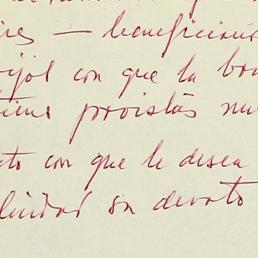 res — beneficiosí
ijol con que la bon
tiene provistas nu
to con que le desea
licidad su devoto